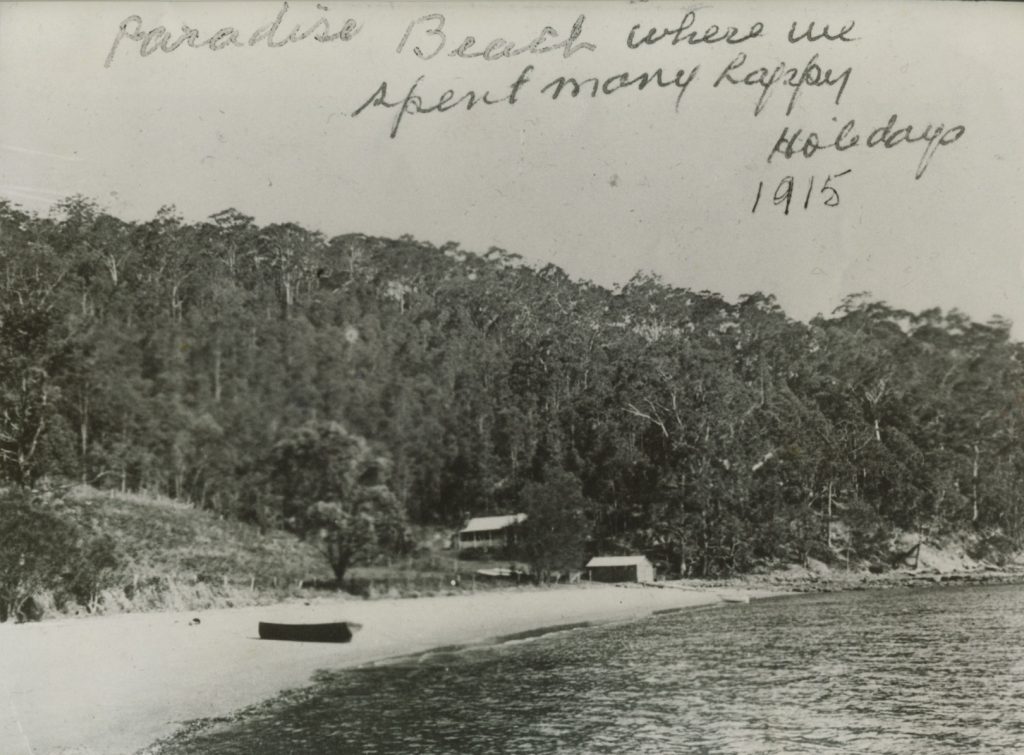 Paradise Beach where we
spent many happy
Holidays
1915